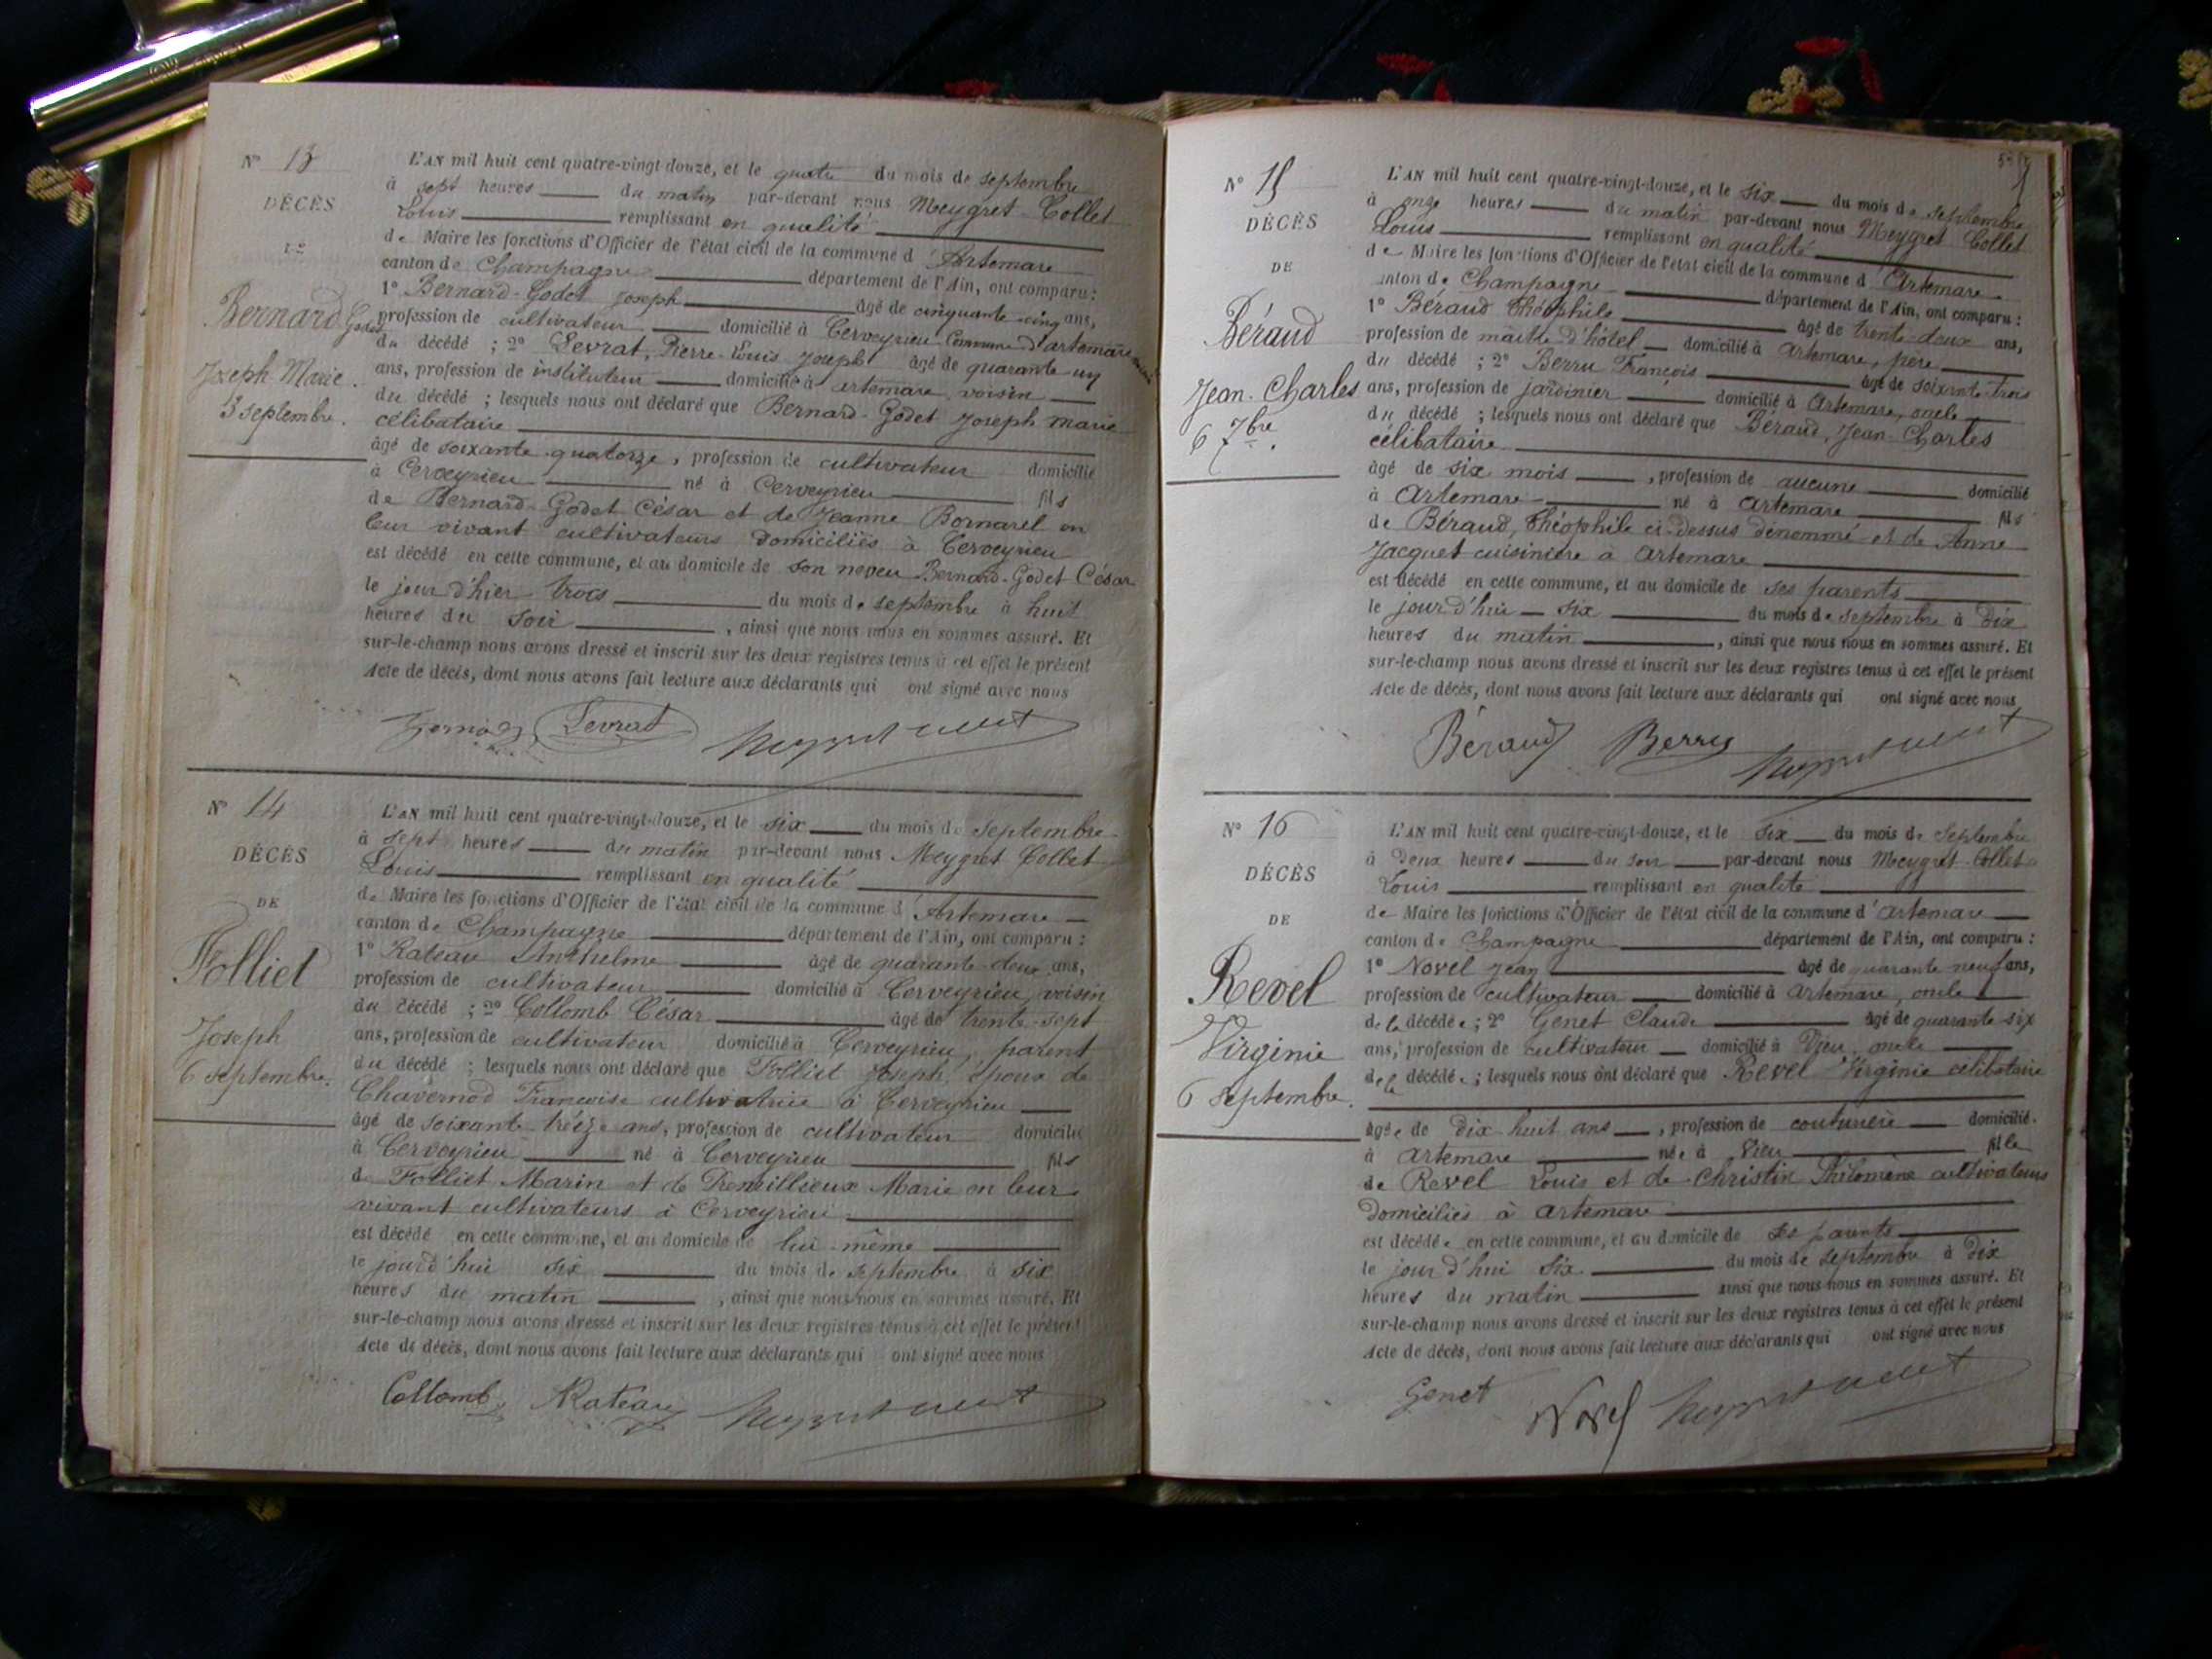 N° 13
DÉCÈS
DE
Bernard Godet
Joseph Marie.
3 septembre.
L'AN mil huit cent quatre-vingt-douze, et le quatre du mois de septembre
à sept heures du matin par-devant nous Meygret-Collet
Louis remplissant en qualité
de Maire les fonctions d'Officier de l'état civil de la commune d'Artemare
canton de Champagne département de l'Ain, ont comparu :
1° Bernard-Godet Joseph âgé de cinquante-cinq ans,
profession de cultivateur domicilié à Cerveyrieu Commune d'artemare
du décédé ; 2° Levrat, Pierre-Louis Joseph âgé de quarante-un
ans, profession de instituteur domicilié à artemare, voisin
du décédé ; lesquels nous ont déclaré que Bernard-Godet Joseph marie
célibataire
âgé de soixante-quatorze, profession de cultivateur domicilié
à Cerveyrieu né à Cerveyrieu fils
de Bernard-Godet César et de Jeanne Bornarel en
leur vivant cultivateurs domiciliés à Cerveyrieu
est décédé en cette commune, et au domicile de son neveu Bernard-Godet César
le jour d'hier trois du mois de septembre à huit
heures du soir, ainsi que nous nous en sommes assuré. Et
sur-le-champ nous avons dressé et inscrit sur les deux registres tenus à cet effet le présent
Acte de décès, dont nous avons fait lecture aux déclarants qui ont signé avec nous
Levrat
N° 14
DÉCÈS
DE
Folliet
Joseph
6 septembre.
L'AN mil huit cent quatre-vingt-douze, et le six du mois de septembre
à sept heures du matin par-devant nous Meygret Collet
Louis remplissant en qualité
de Maire les fonctions d'Officier de l'état civil de la commune d'Artemare
canton de Champagne département de l'Ain, ont comparu :
1° Rateau Anthelme âgé de quarante-deux ans,
profession de cultivateur domicilié à Cerveyrieu, voisin
du décédé ; 2° Collomb César âgé de trente-sept
ans, profession de cultivateur domicilié à Cerveyrieu, parent
du décédé ; lesquels nous ont déclaré que Folliet Joseph, époux de
Chavernod Françoise cultivatrice à Cerveyrieu
âgé de soixante-treize ans, profession de cultivateur domicilié
à Cerveyrieu né à Cerveyrieu fils
de Folliet Marin et de Marie en leur
vivant cultivateurs à Cerveyrieu
est décédé en cette commune, et au domicile de lui-même
le jourd'hui six du mois de septembre à six
heures du matin, ainsi que nous nous en sommes assuré. Et
sur-le-champ nous avons dressé et inscrit sur les deux registres tenus à cet effet le présent
Acte de décès, dont nous avons fait lecture aux déclarants qui ont signé avec nous
Collomb Rateau
N° 15
DÉCÈS
DE
Béraud
Jean-Charles
6 7bre.
L'AN mil huit cent quatre-vingt-douze, et le six du mois de septembre
à onze heures du matin par-devant nous Meygret Collet
Louis remplissant en qualité
de Maire les fonctions d'Officier de l'état civil de la commune d'Artemare
canton de Champagne département de l'Ain, ont comparu :
1° Béraud Théophile âgé de trente-deux ans,
profession de maître d'hôtel domicilié à Artemare, père
du décédé ; 2° Berru François âgé de soixante-trois
ans, profession de jardinier domicilié à Artemare, oncle
du décédé ; lesquels nous ont déclaré que Béraud, Jean-Charles
célibataire
âgé de six mois, profession de aucune domicilié
à Artemare né à Artemare fils
de Béraud, Théophile ci-dessus dénommé et de Anne
Jacquet cuisinière à Artemare
est décédé en cette commune, et au domicile de ses parents
le jourd'hui six du mois de septembre à dix
heures du matin, ainsi que nous nous en sommes assuré. Et
sur-le-champ nous avons dressé et inscrit sur les deux registres tenus à cet effet le présent
Acte de décès, dont nous avons fait lecture aux déclarants qui ont signé avec nous
Béraud
N° 16
DÉCÈS
DE
Revel
Virginie
6 septembre.
L'AN mil huit cent quatre-vingt-douze, et le six du mois de septembre
à deux heures du soir par-devant nous Meygret-Collet
Louis remplissant en qualité
de Maire les fonctions d'Officier de l'état civil de la commune d'artemare
canton de Champagne département de l'Ain, ont comparu :
1° Novel Jean âgé de quarante neuf ans,
profession de cultivateur domicilié à artemare, oncle
de la décédée ; 2° Genet Claude âgé de quarante-six
ans, profession de cultivateur domicilié à Vieu, oncle
de la décédée ; lesquels nous ont déclaré que Revel Virginie célibataire
âgée de dix-huit ans, profession de couturière domiciliée
à artemare née à Vieu fille
de Revel Louis et de Christin Philomène cultivateurs
domiciliés à artemare
est décédée en cette commune, et au domicile de ses parents
le jourd'hui six du mois de septembre à dix
heures du matin ainsi que nous nous en sommes assuré. Et
sur-le-champ nous avons dressé et inscrit sur les deux registres tenus à cet effet le présent
Acte de décès, dont nous avons fait lecture aux déclarants qui ont signé avec nous
Genet Novel